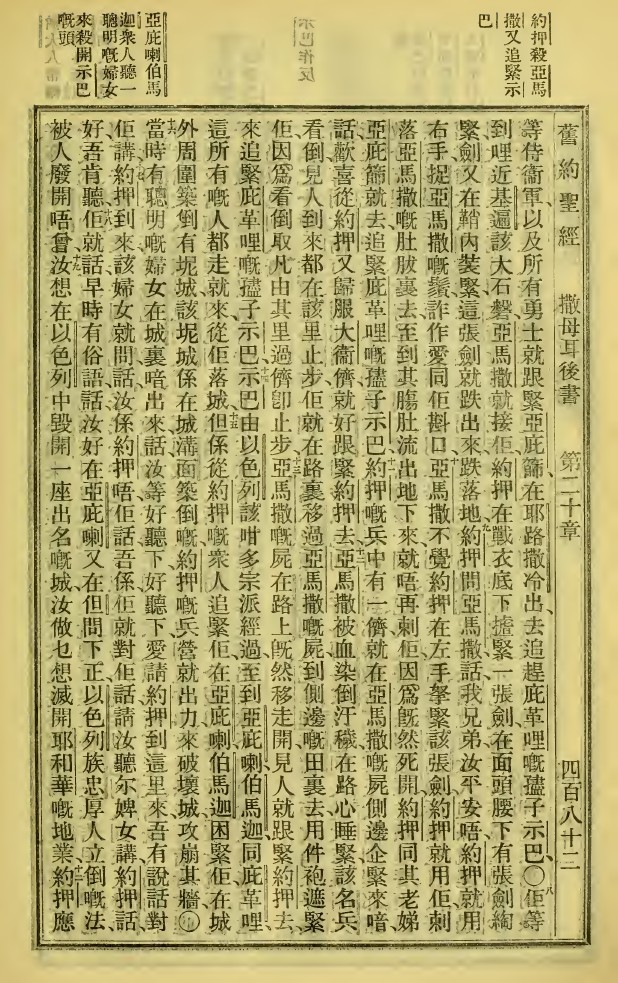 約押殺亞馬
撒又追緊示
巴
示巴作反
亞庇喇伯馬
迦衆人聽一
聰明嘅婦女
來殺開示巴
嘅頭
舊約聖經 撒母耳後書 第二十章 四百八十二
等侍衞軍以及所有勇士就跟緊亞庇篩在耶路撒冷出去追趕庇革哩嘅孻子示巴〇八佢等
到哩近基遍該大石磐亞馬撒就接佢約押在戰衣底下㨢緊一張劍在面頭腰下有張劍綯
緊劍又在鞘內裝緊這張劍就跌出來跌落地九約押問亞馬撒話我兄弟汝平安唔約押就用
右手捉亞馬撒嘅鬚詐作愛同佢斟口十亞馬撒不覺約押在左手拏緊該張劍約押就用佢剌
落亞馬撒嘅肚胈裏去至到其膓肚流出地下來就唔再剌佢因爲旣然死開約押同其老娣
亞庇篩就去追緊庇革哩嘅孻子示巴十一約押嘅兵中有一儕就在亞馬撒嘅屍側邊企緊來喑
話歡喜從約押又歸服大衞儕就好跟緊約押去十二亞馬撒被血染倒汙穢在路心睡緊該名兵
看倒見人到來都在該里止步佢就在路裏移過亞馬撒嘅屍到側邊嘅田裏去用件袍遮緊
佢因爲看倒取凡由其里過儕卽止步十三亞馬撒嘅屍在路上旣然移走開見人就跟緊約押去
來追緊庇革哩嘅孻子示巴十四示巴由以色列該咁多宗派經過至到亞庇喇伯馬迦同庇革哩
這所有嘅人都走就來從佢落城十五但係從約押嘅衆人追緊佢在亞庇喇伯馬迦困緊佢在城
外周圍築倒有坭城該坭城係在城溝面築倒嘅約押嘅兵營就出力來破壞城攻崩其牆〇
十六當時有聰明嘅婦女在城裏喑出來話汝等好聽下好聽下愛請約押到這里來吾有說話對
佢講十七約押到來該婦女就問話汝係約押唔佢話吾係佢就對佢話請汝聽尒婢女講約押話
好吾肯聽十八佢就話早時有俗語話汝好在亞庇喇又在但問下十九正以色列族忠厚人立倒嘅法
被人廢開唔曾汝想在以色列中毀開一座出名嘅城汝做乜想滅開耶和華嘅地業二十約押應